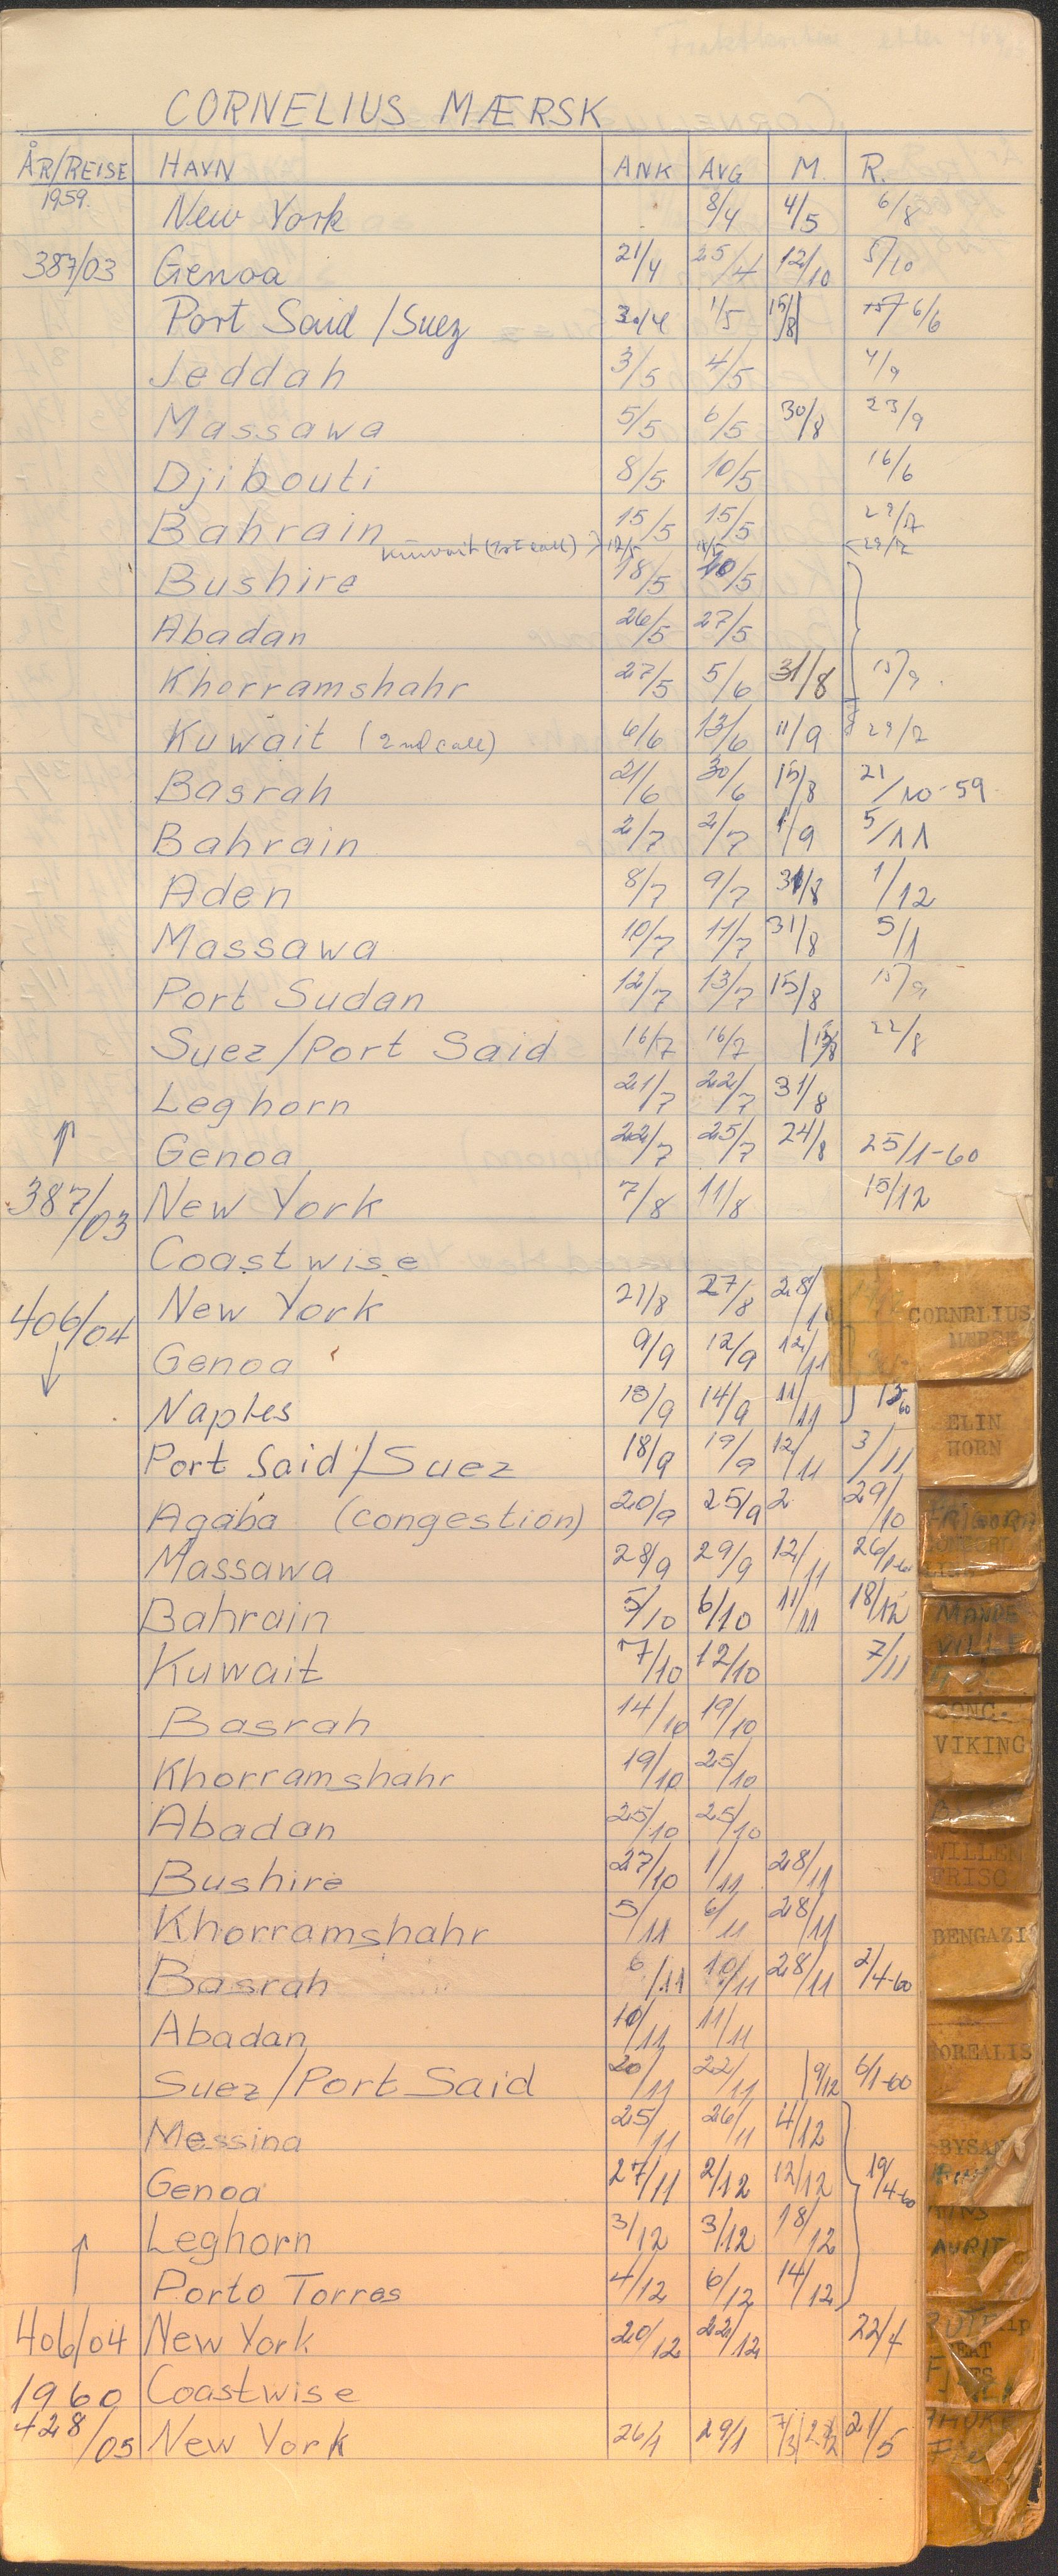 CORNELIUS MÆRSK
ÅR/REISE HAVN ANK AVG M. R.
1959. New York 8/4 4/5 6/8
387/03 Genoa 21/4 25/4 12/10 5/10
Port Said/Suez 30/4 1/5 15/8 6/6
Jeddah 3/5 4/5 4/9
Massawa 5/5 6/5 30/8 23/9
Djibouti 8/5 10/5 16/6
Bahrain 15/5 15/5 29/7
Kuwait (1st call) 17/5 29/7
Bushire 18/5 20/5
Abadan 26/5 27/5
Khorramshahr 27/5 5/6 31/8 15/9
Kuwait (2nd call) 6/6 13/6 11/9 29/7
Basrah 21/6 30/6 15/8 21/10-59
Bahrain 2/7 2/7 1/9 5/11
Aden 8/7 9/7 31/8 1/12
Massawa 10/7 11/7 31/8 5/1
Port Sudan 12/7 13/7 15/8 15/9
Suez/Port Said 16/7 16/7 15/8 22/8
Leghorn 21/7 22/7 31/8
Genoa 22/7 25/7 24/8 25/1-60
387/03 New York 7/8 11/8 15/12
Coastwise
406/04 New York 21/8 27/8 28/
Genoa 9/9 12/9 12/11
Naples 13/9 14/9 11/11
Port Said/Suez 18/9 19/9 12/11 3/11
Aqaba (congestion) 20/9 25/9 2 29/10
Massawa 28/9 29/9 12/11 26/1-60
Bahrain 5/10 6/10 11/11 18/12
Kuwait 7/10 12/10 7/11
Basrah 14/10 19/10
Khorramshahr 19/10 25/10
Abadan 25/10 25/10
Bushire 27/10 1/11 28/11
Khorramshahr 5/11 6/11 28/11
Basrah 6/11 10/11 28/11 2/4-60
Abadan 10/11 11/11
Suez/Port Said 20/11 22/11 9/12 6/1-60
Messina 25/11 26/11 4/12
Genoa 27/11 2/12 12/12 19/4-60
Leghorn 3/12 3/12 18/12
Porto Torres 4/12 6/12 14/12
406/04 New York 20/12 22/12 22/4
1960 Coastwise
428/05 New York 26/1 29/1 7/3 21/5
CORNELIUS
MÆRSK
ELIN
HORN
MANDE
VILLE
CONC.
VIKING
WILLEM
FRISO
BENGAZI
BOREALIS
BYSAN